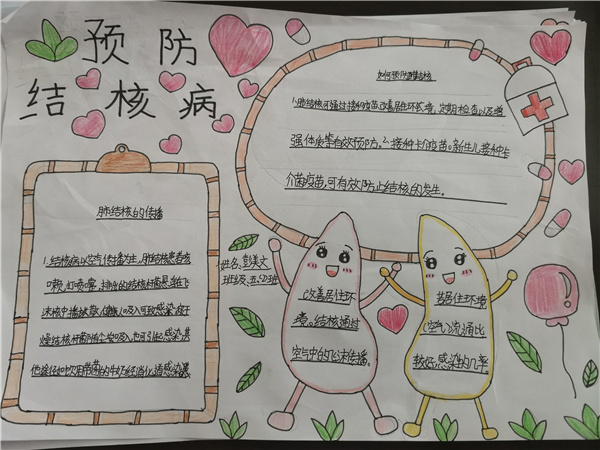 预防
结核病
如何预防肺结核
1.肺结核可通过接种疫苗、改善居住环境、定期检查以及增
强体质等有效预防。2.接种卡介疫苗。新生儿接种卡
介菌疫苗,可有效防止结核的发生。
肺结核的传播
1.结核病以空气传播为主,肺结核患者咳
嗽、打喷嚏,排出的结核杆菌悬浮在飞
沫核中播散,健康人吸入可致感染,
结核杆菌吸入,也可引起感染,其
他途径如饮用带菌的牛奶经消化道感染
姓名:彭美文
班级:五(2)班
改善居住环
境。结核通过
空气中的飞沫传播。
若居住环境
空气流通比
较好,感染的几率